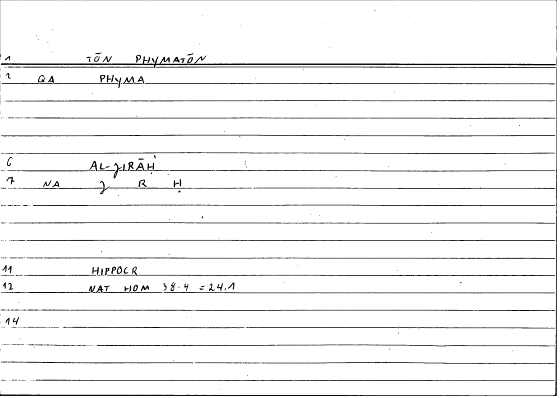 1 TŌN PHYMATŌN
2 QA PHYMA
6 AL-ǧIRĀḤ
7 NA ǧ R Ḥ
11 HIPPOCR
12 NAT HOM 38.4 = 24.1
14